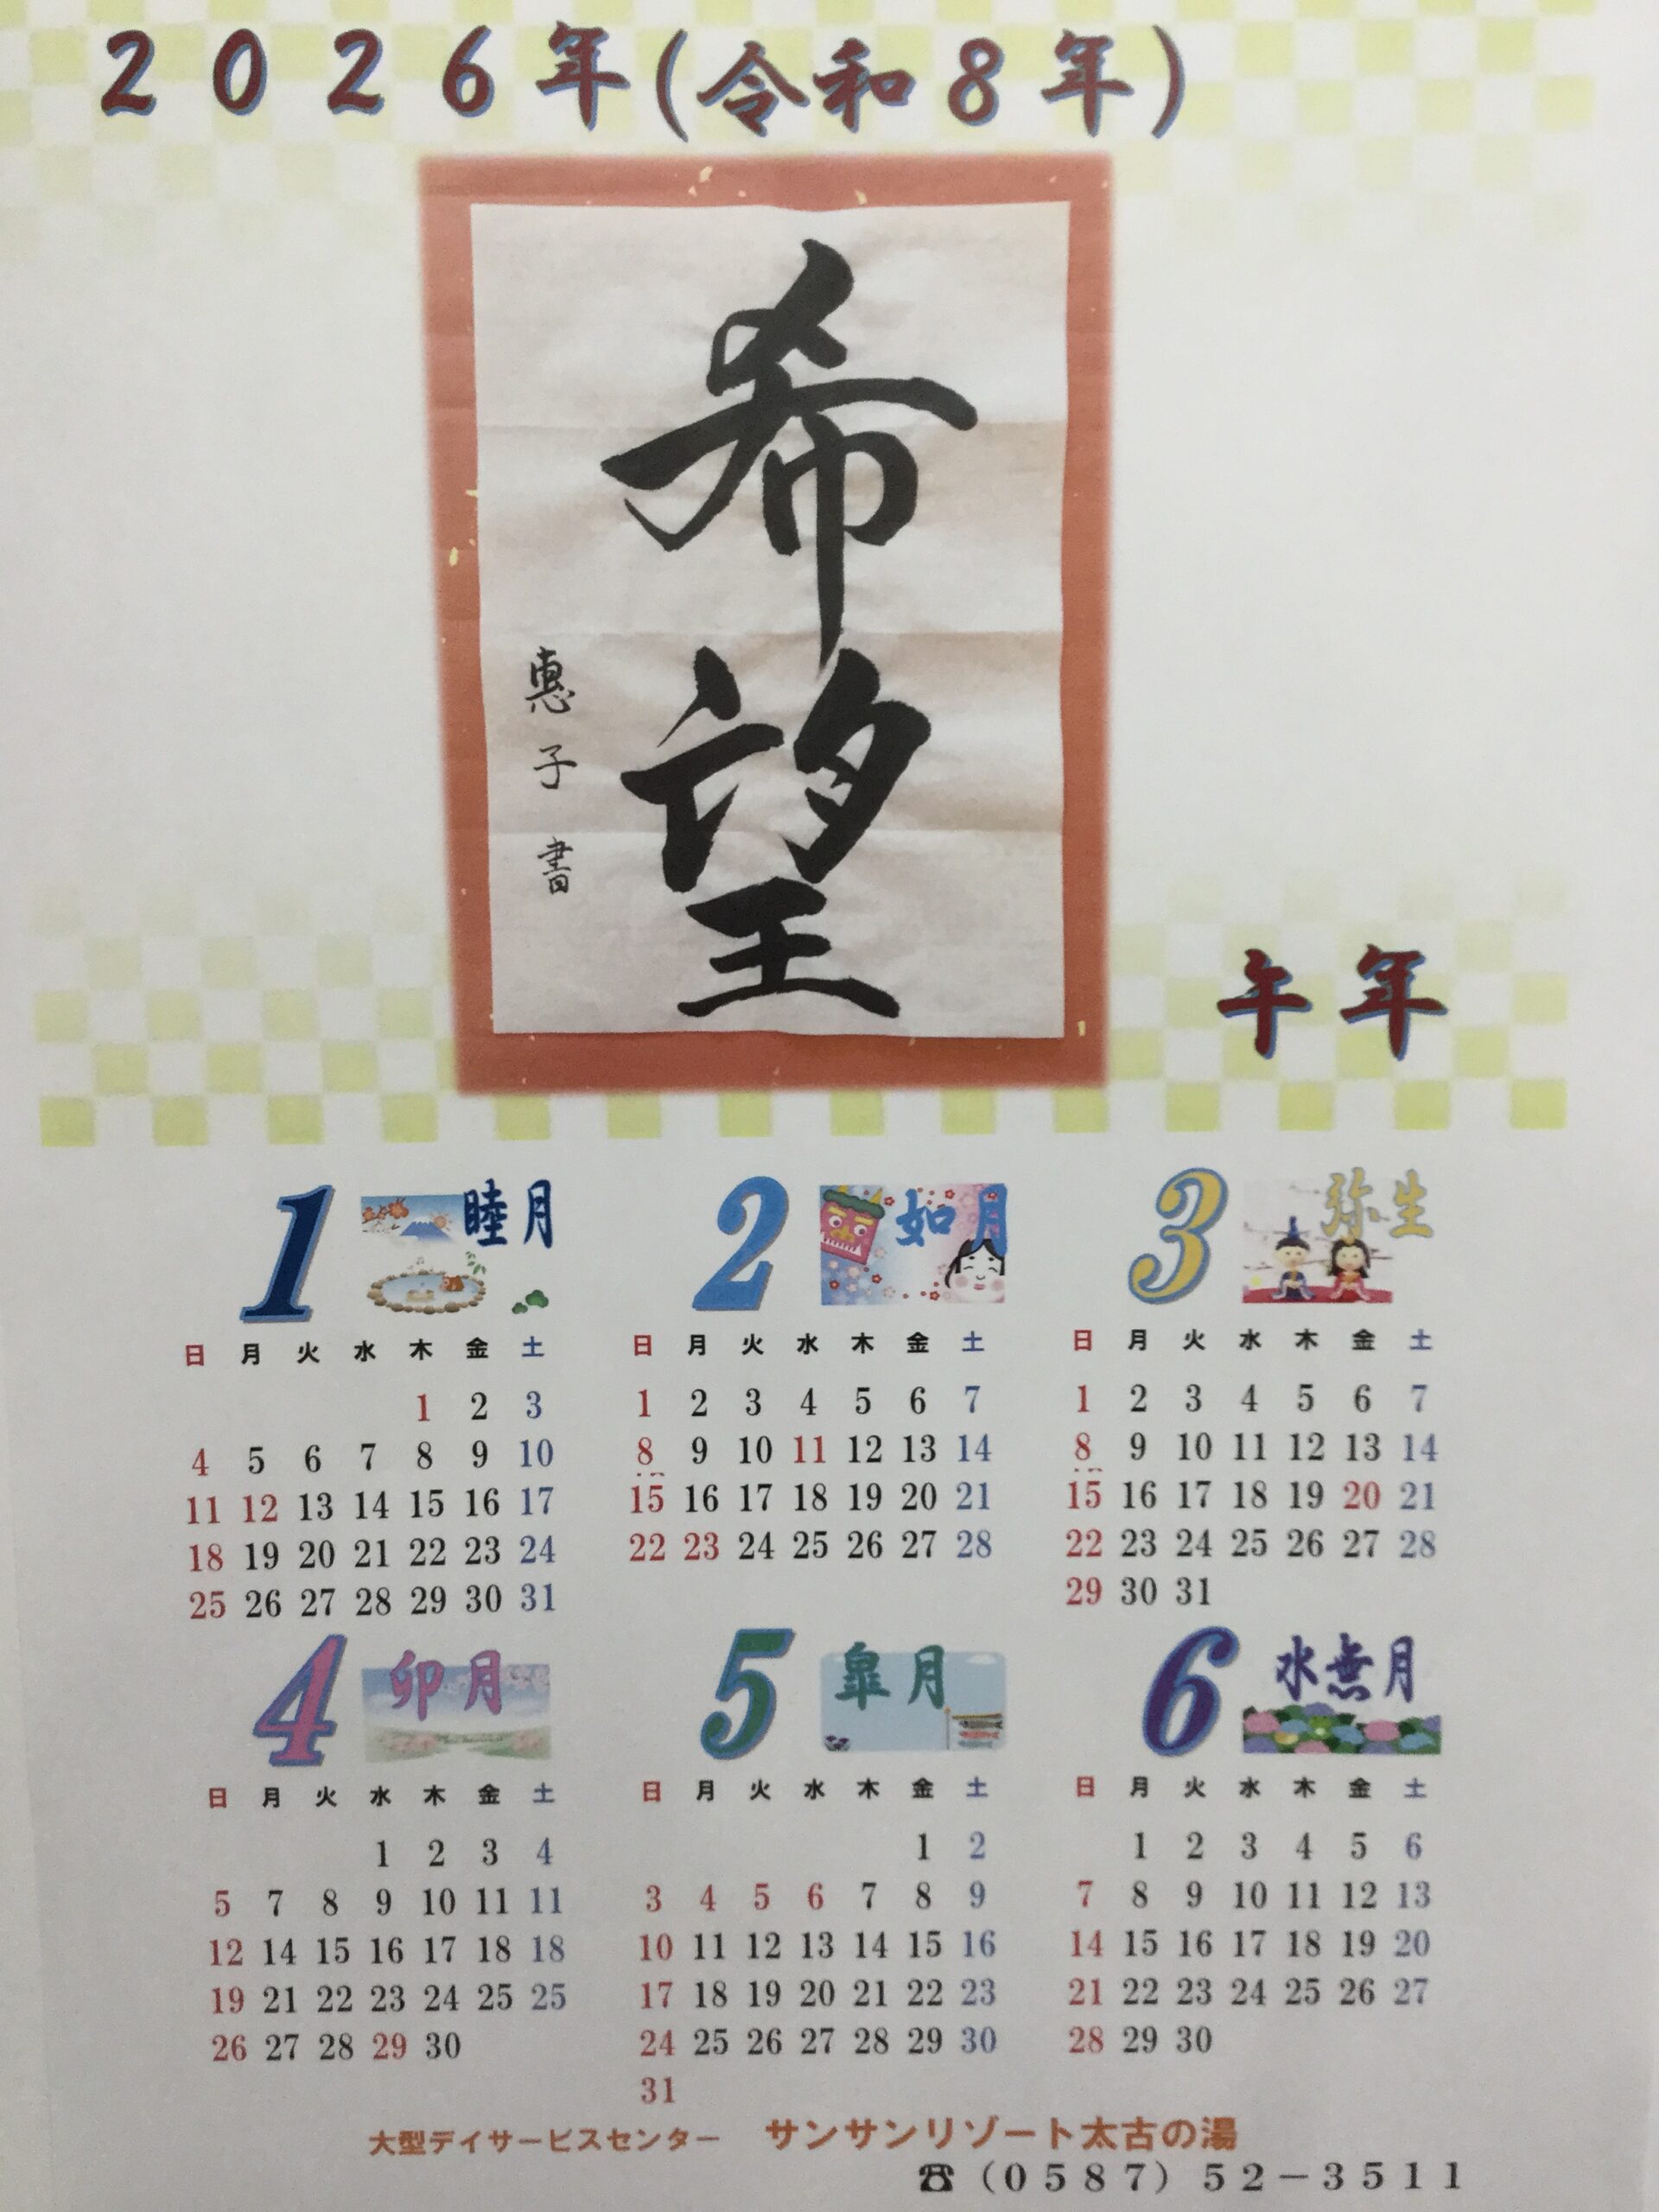 2026年(令和8年)
希望
惠子書
午年
1 睦月
日 月 火 水 木 金 土
1 2 3
4 5 6 7 8 9 10
11 12 13 14 15 16 17
18 19 20 21 22 23 24
25 26 27 28 29 30 31
2 如月
日 月 火 水 木 金 土
1 2 3 4 5 6 7
8 9 10 11 12 13 14
15 16 17 18 19 20 21
22 23 24 25 26 27 28
3 弥生
日 月 火 水 木 金 土
1 2 3 4 5 6 7
8 9 10 11 12 13 14
15 16 17 18 19 20 21
22 23 24 25 26 27 28
29 30 31
4 卯月
日 月 火 水 木 金 土
1 2 3 4
5 7 8 9 10 11 11
12 14 15 16 17 18 18
19 21 22 23 24 25 25
26 27 28 29 30
5 皐月
日 月 火 水 木 金 土
1 2
3 4 5 6 7 8 9
10 11 12 13 14 15 16
17 18 19 20 21 22 23
24 25 26 27 28 29 30
31
6 水無月
日 月 火 水 木 金 土
1 2 3 4 5 6
7 8 9 10 11 12 13
14 15 16 17 18 19 20
21 22 23 24 25 26 27
28 29 30
大型デイサービスセンター サンサンリゾート太古の湯
☎(0587)52-3511